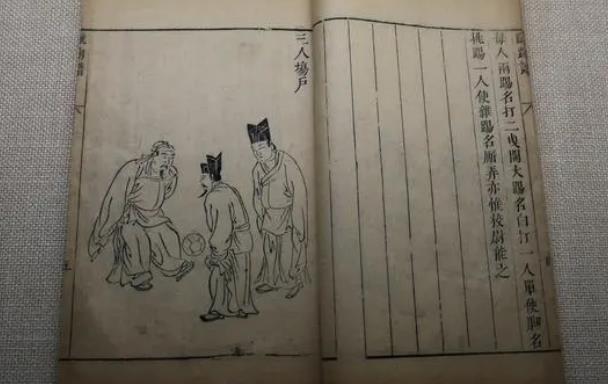 每人兩踢名打二曳開大踢名白打一人單使脚名
挑踢一人使雜踢名厮弄亦惟校尉能之
三人場戶